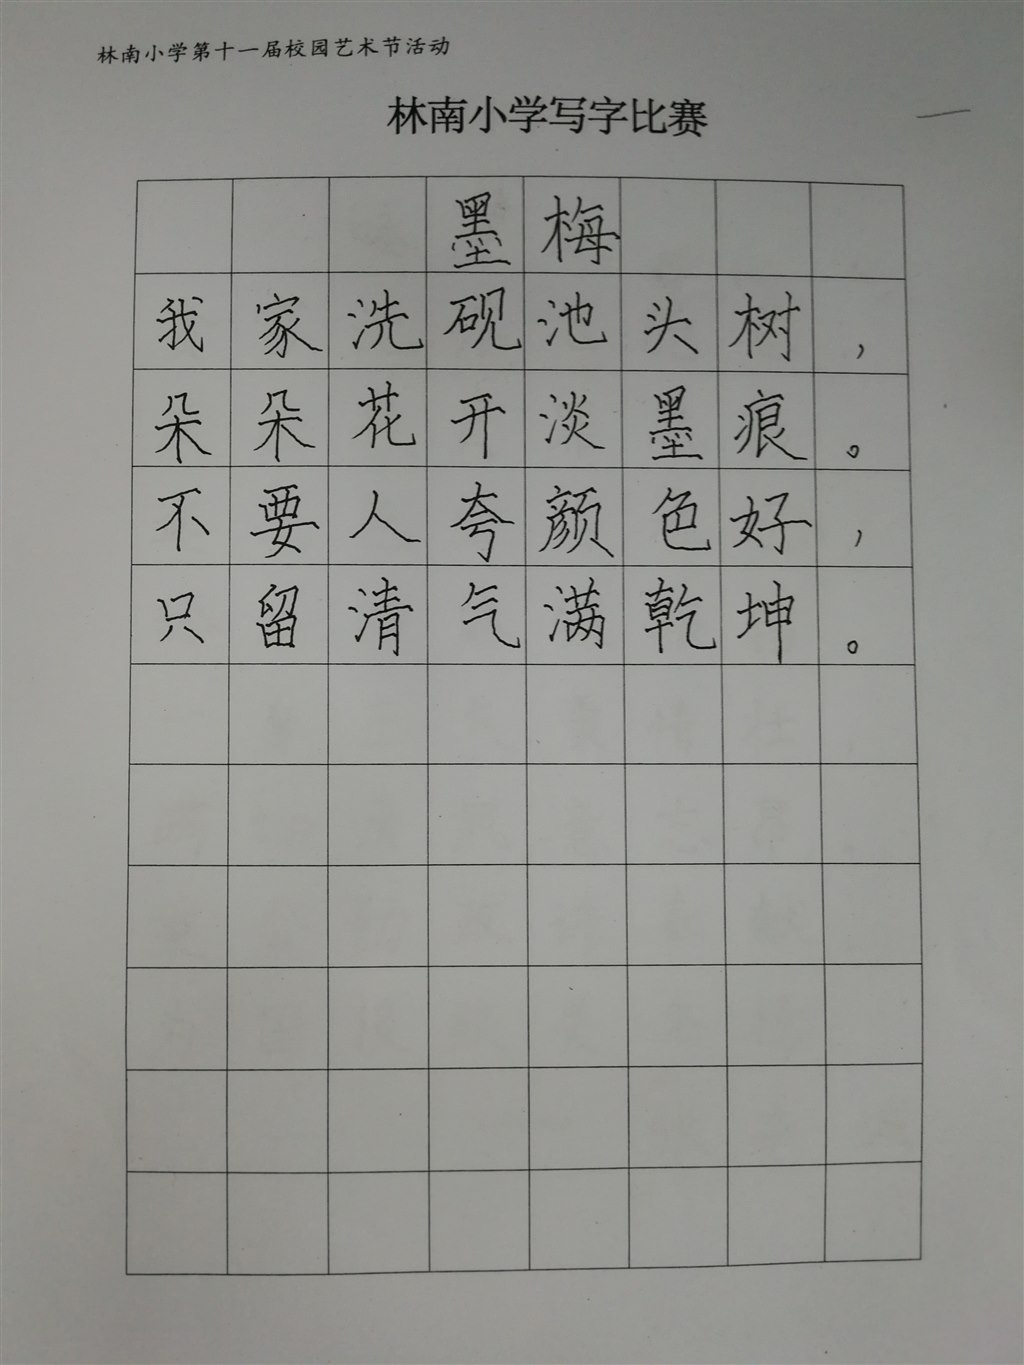 林南小学第十一届校园艺术节活动
林南小学写字比赛
墨梅
我家洗砚池头树，
朵朵花开淡墨痕。
不要人夸颜色好，
只留清气满乾坤。